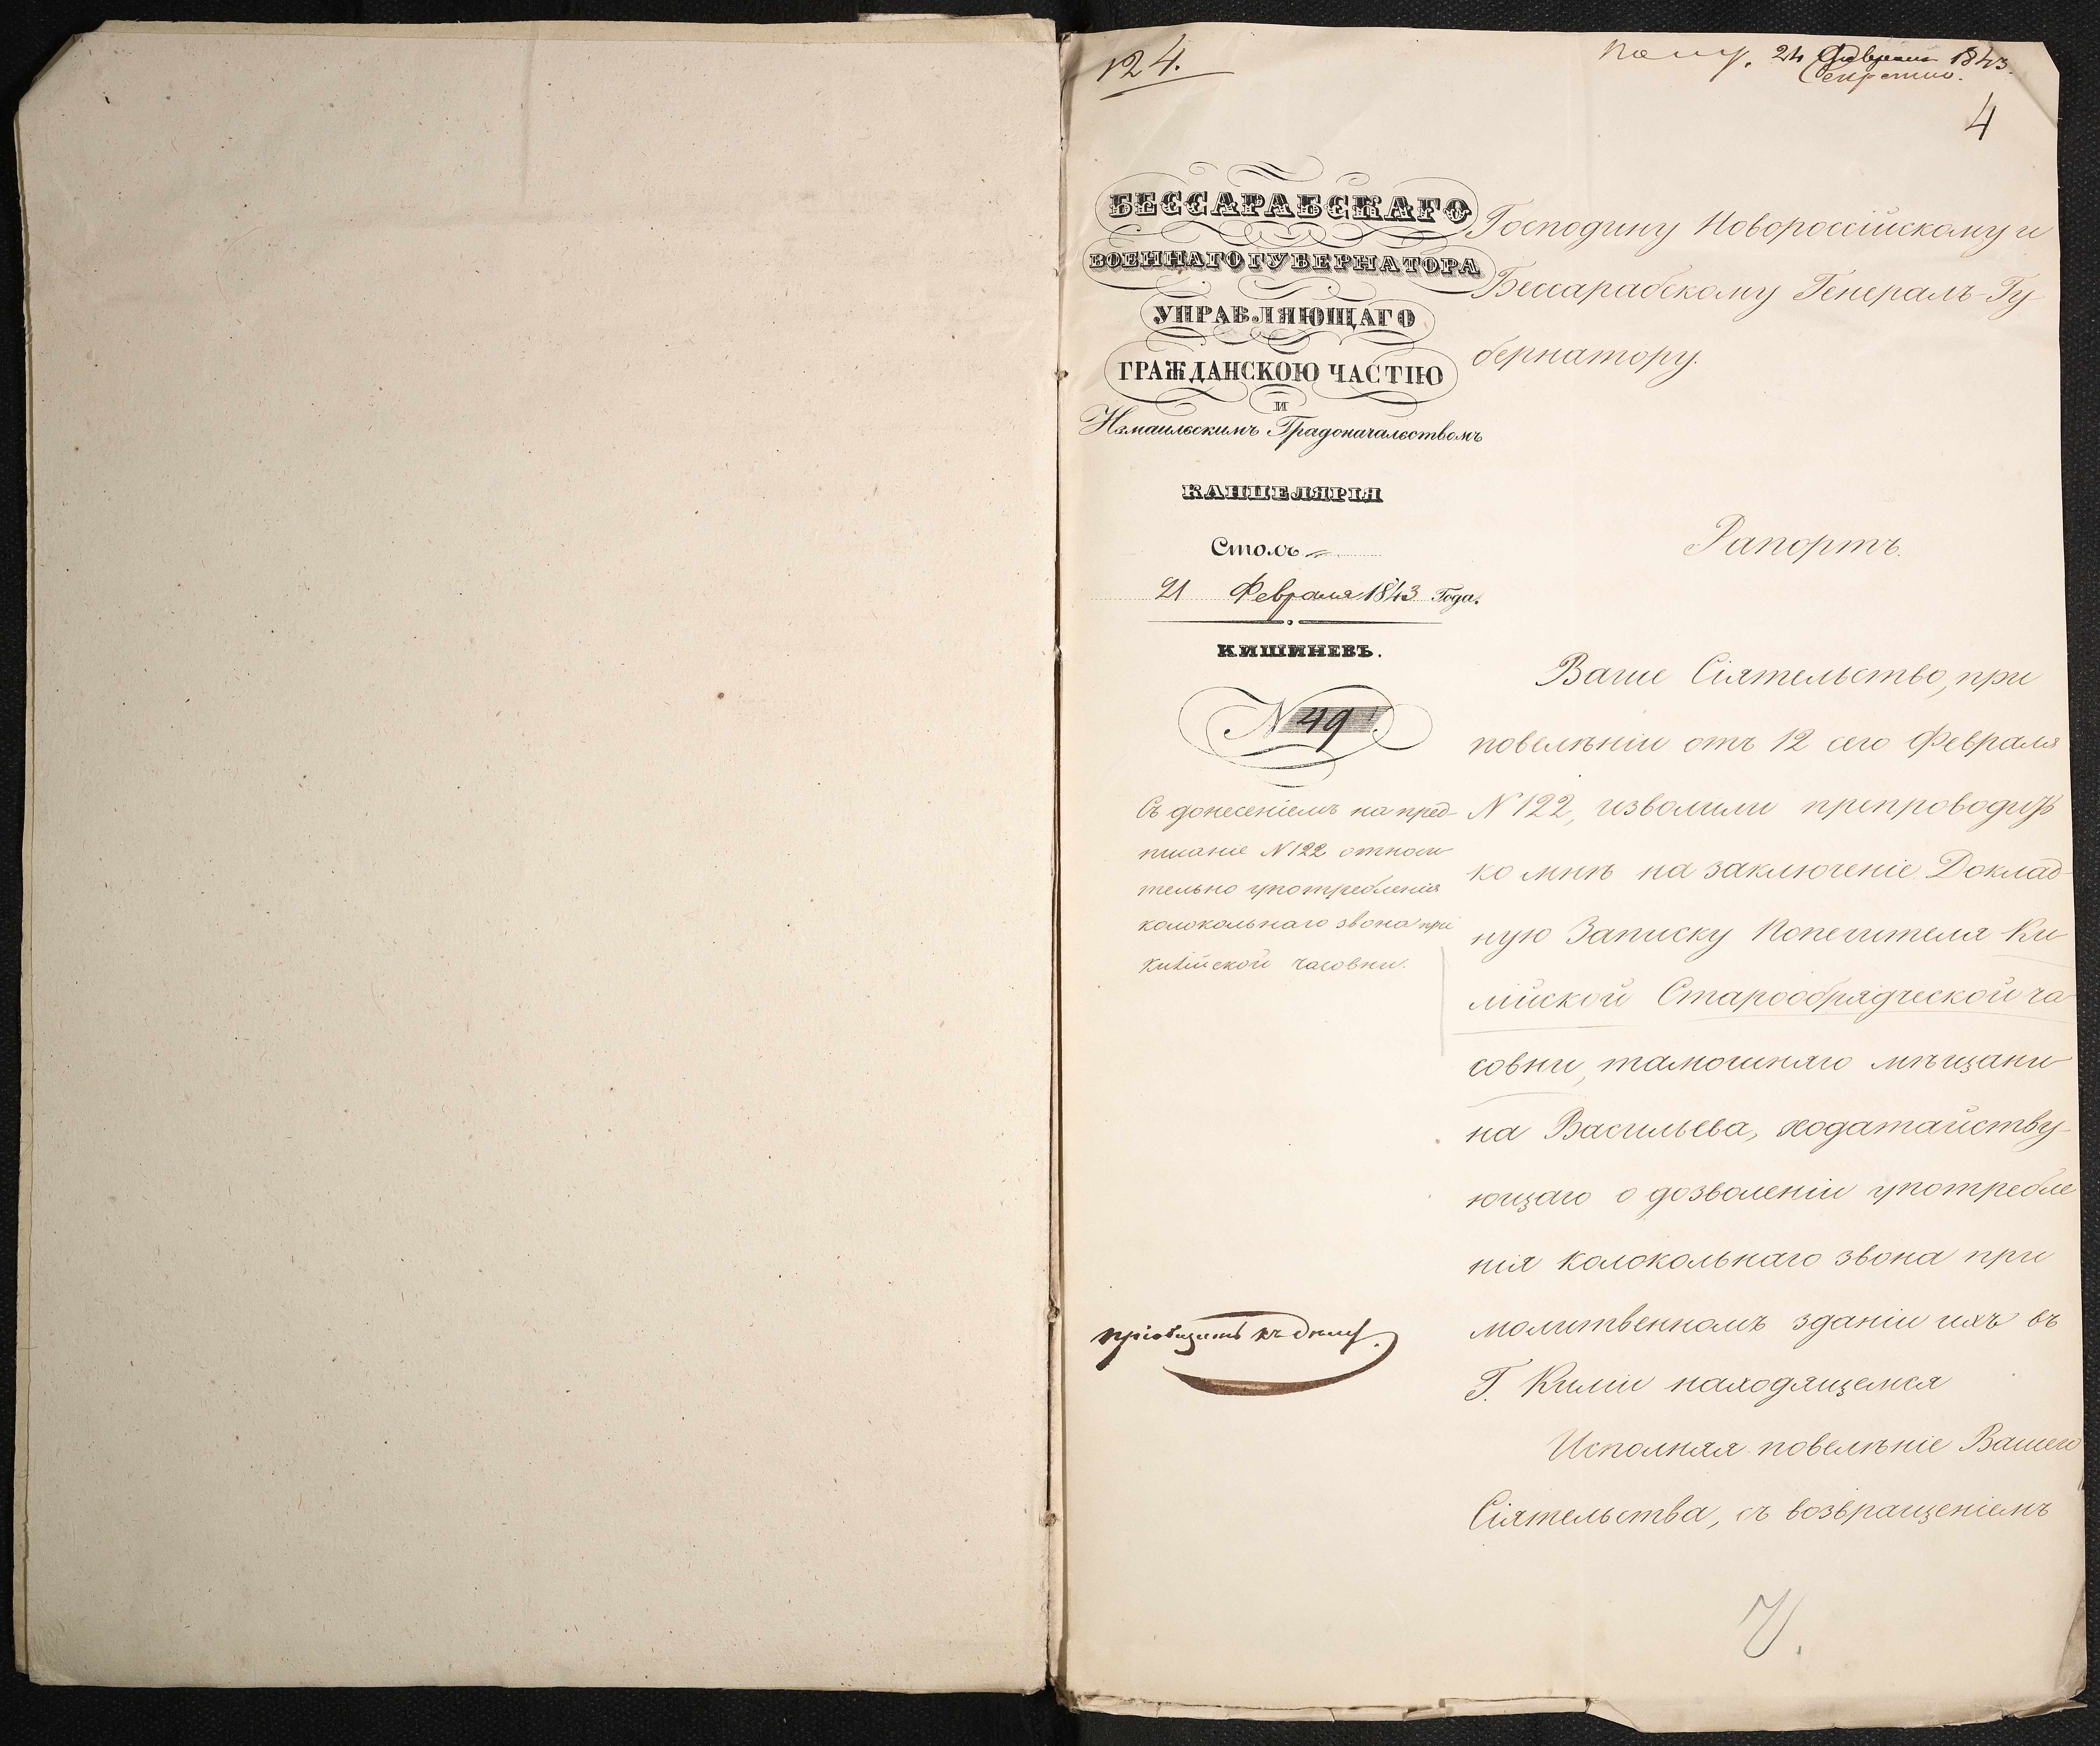 124.
Полу. 24 Февраля 1843.
Секретно.
4
БЕССАРАБСКАГО
ВОЕННАГО ГУБЕРНАТОРА
УПРАВЛЯЮЩАГО
ГРАЖДАНСКОЮ ЧАСТІЮ
И
Измаильскимъ Градоначальствомъ
КАНЦЕЛЯРІЯ
Столъ
21 Февраля 1843 Года.
КИШИНЕВЪ.
N 49.
Съ донесеніемъ на пред-
писаніе N 122 относи
тельно употребленія
колокольнаго звона при
Килійской часовни.
пріобщить къ дѣлу.
Господину Новороссійскому и
Бессарабскому Генералъ-Гу
бернатору.
Рапортъ.
Ваше Сіятельство, при
повелѣніи отъ 12 сего Февраля
N 122, изволили препроводить
ко мнѣ на заключеніе Доклад-
ную Записку Попечителя Ки
лійской Старообрядческой ча
совни, тамошняго мѣщани
на Васильева, ходатайству-
ющаго о дозволеніи употребле
нія колокольнаго звона при
молитвенномъ зданіи ихъ въ
Г. Киліи находящемся
Исполняя повелѣніе Вашего
Сіятельства, съ возвращеніемъ